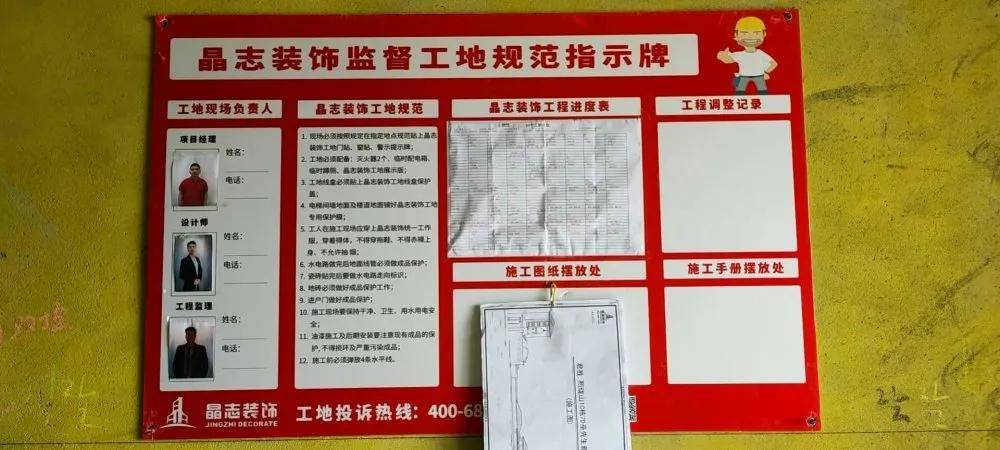 晶志装饰监督工地规范指示牌
工地现场负责人
项目经理
姓名：
电话：
设计师
姓名：
电话：
工程监理
姓名：
电话：
晶志装饰工地规范
1. 现场必须按照规定在指定地点规范贴上晶志
装饰工地门贴、窗贴、警示提示牌；
2. 工地必须配备：灭火器2个、临时配电箱、
临时蹲厕、晶志装饰工地展示版；
3. 工地线盒必须贴上晶志装饰工地线盒保护
盖；
4. 电梯间墙地面及楼道地面铺好晶志装饰工地
专用保护膜；
5. 工人在施工现场应穿上晶志装饰统一工作
服，穿着得体，不得穿拖鞋、不得赤膊上
身、不允许抽烟；
6. 水电路做完后地面线管必须做成品保护；
7. 瓷砖贴完后要做水电路走向标识；
8. 地砖必须做好成品保护工作；
9. 进户门做好成品保护；
10. 施工现场要保持干净、卫生、用水用电安
全；
11. 油漆施工及后期安装要注意现有成品的保
护，不得损坏及严重污染成品；
12. 施工前必须弹放4条水平线。
晶志装饰工程进度表
施工图纸摆放处
(施工图)
工程调整记录
施工手册摆放处
晶志装饰
JINGZHI DECORATE
工地投诉热线：400-68